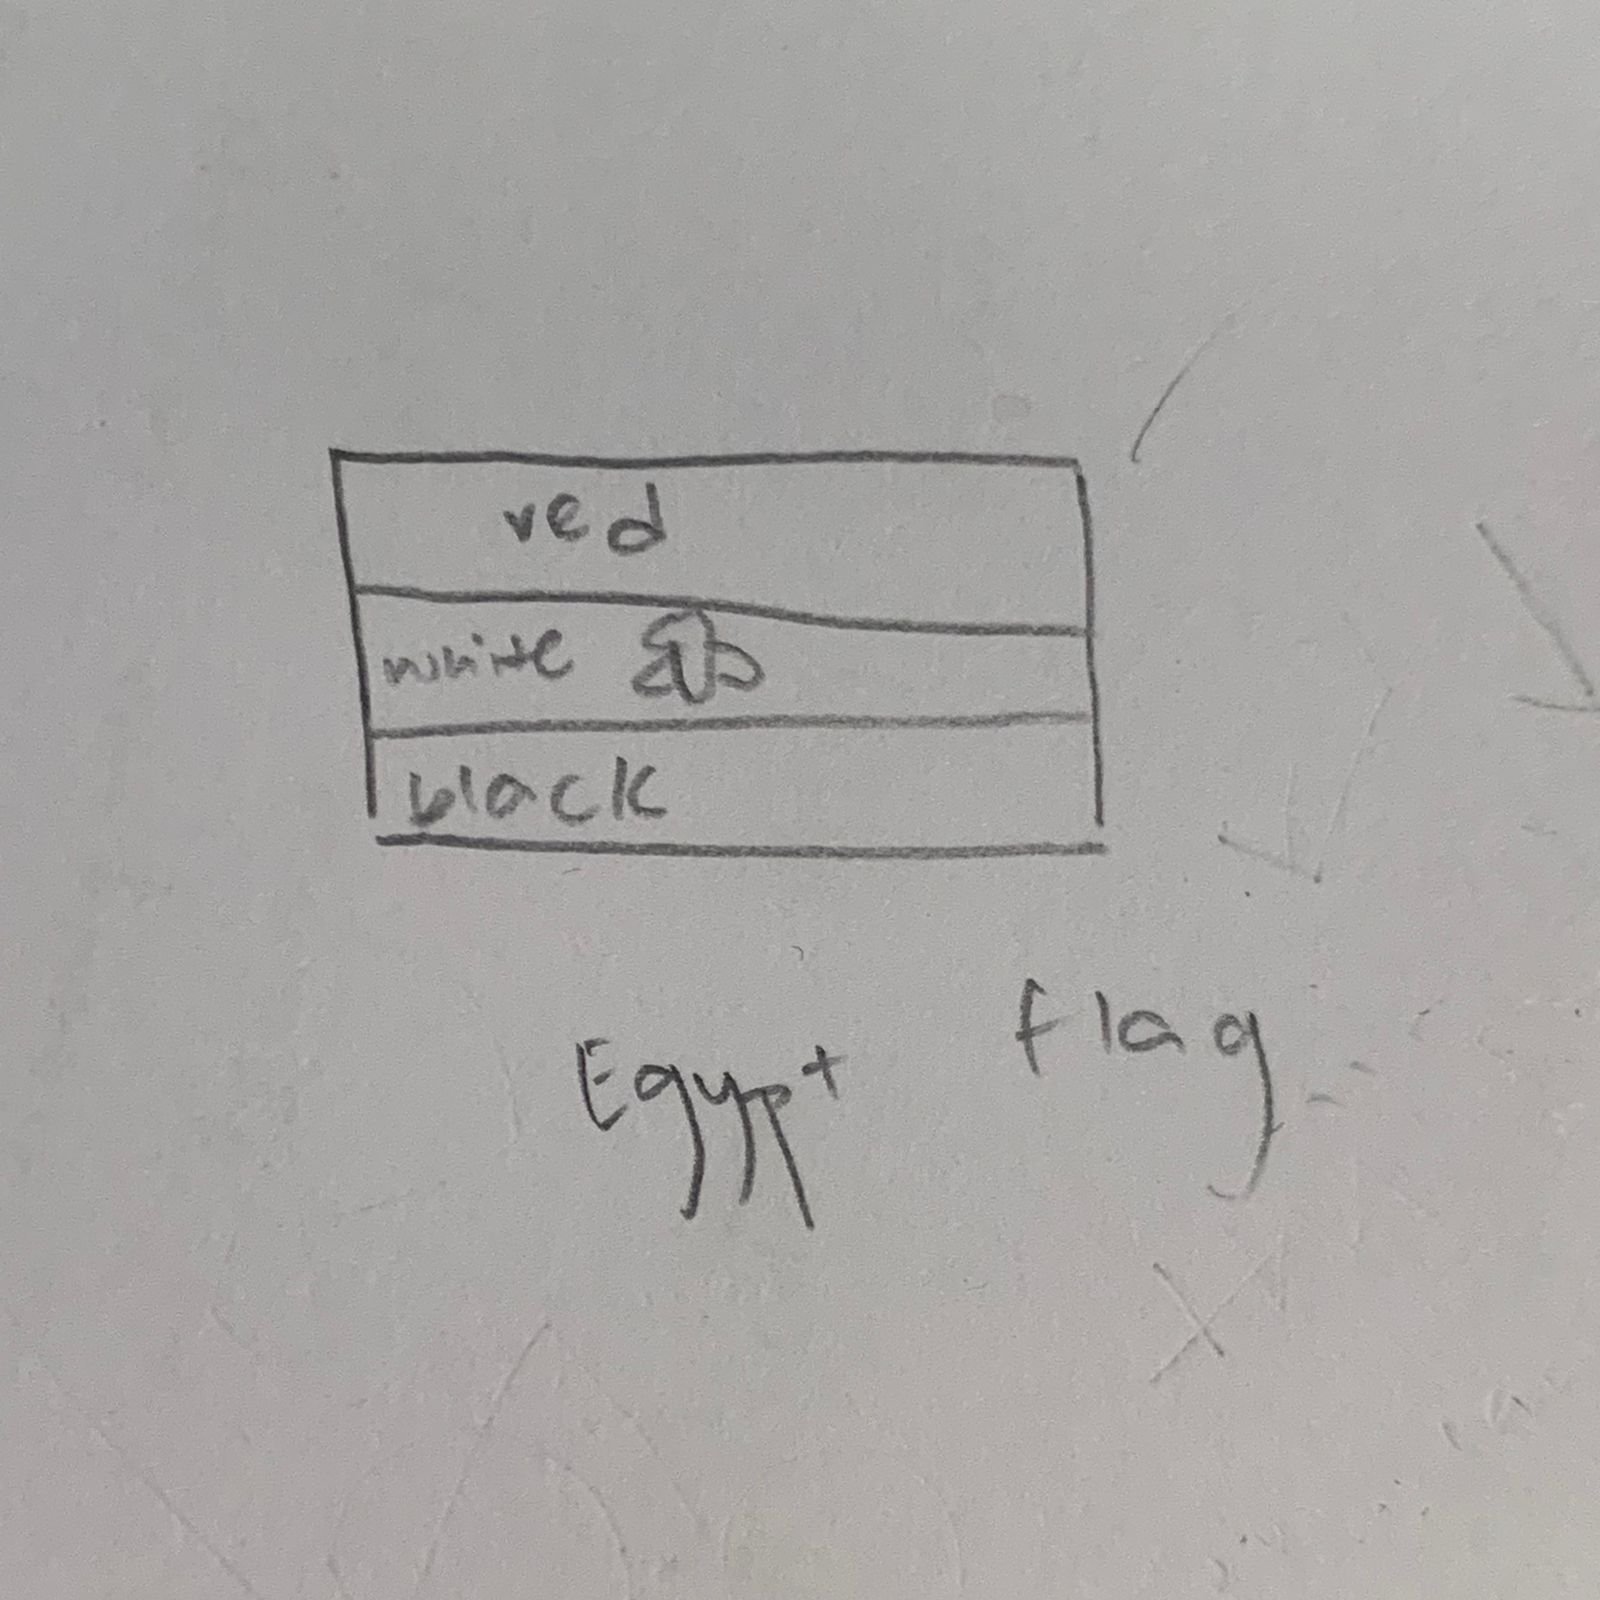 red
white
black
Egypt flag